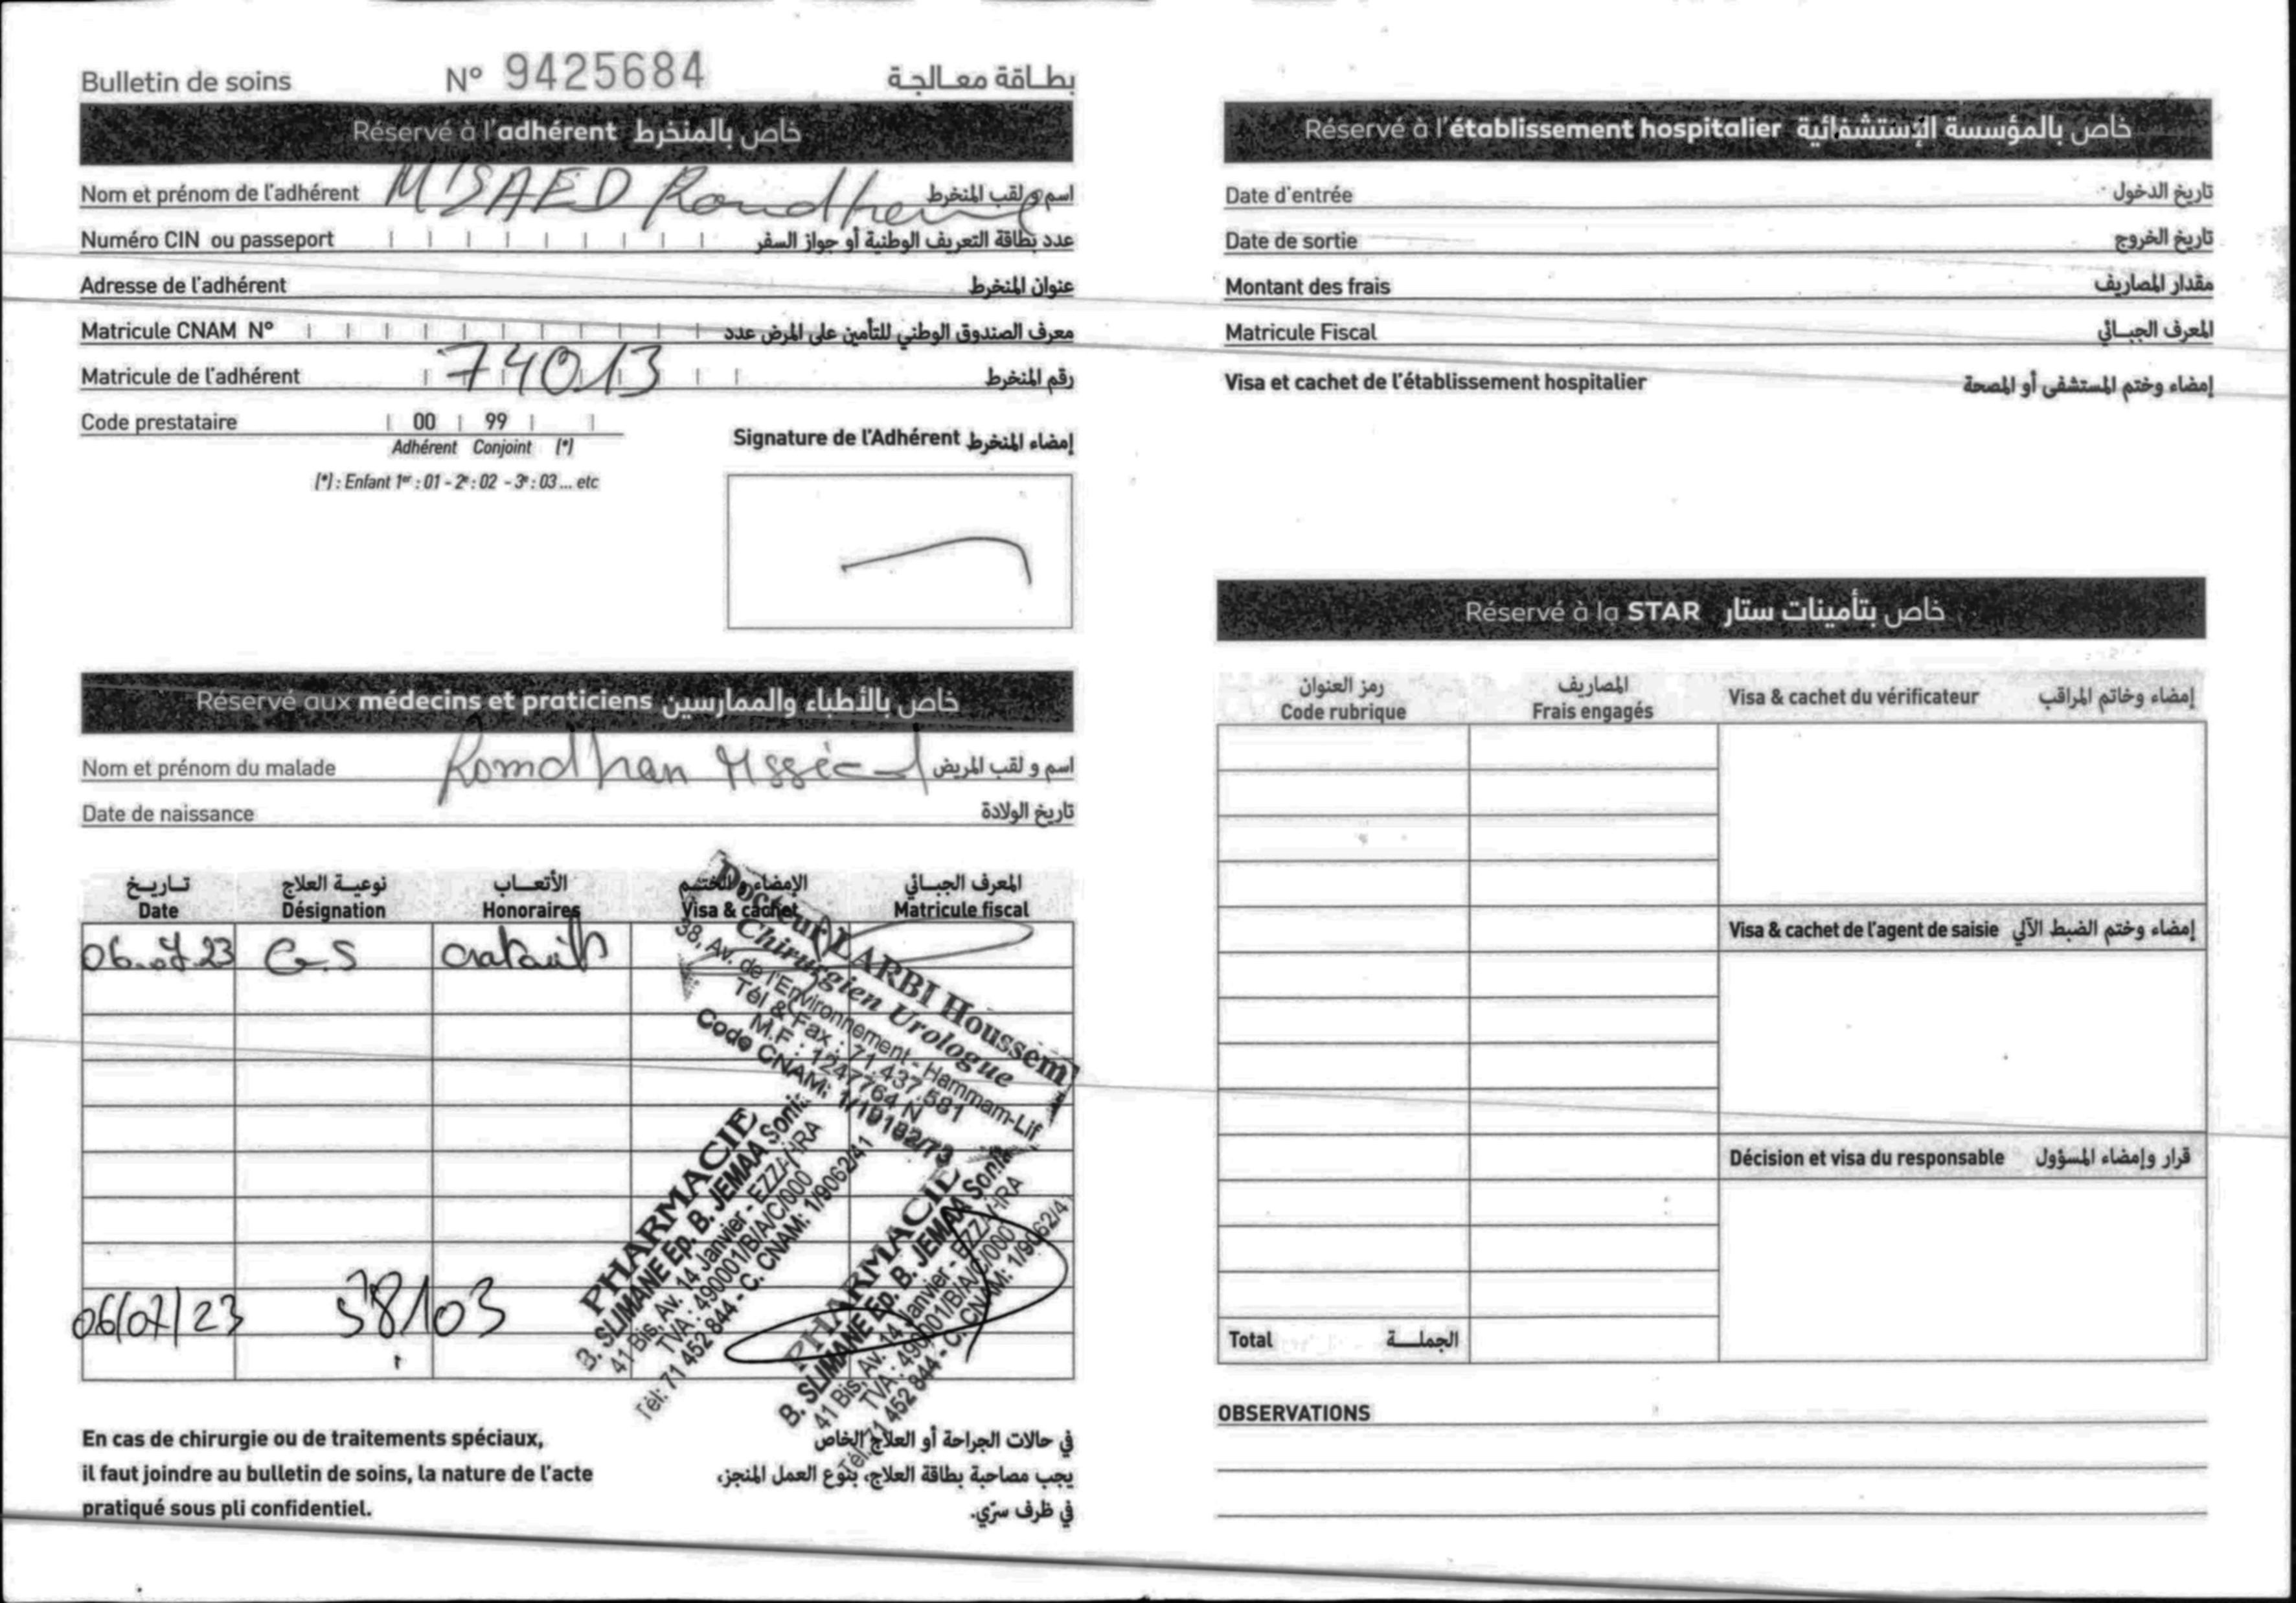 Bulletin de soins N° 9425684 بطاقة معالجة
Réservé à l'adhérent خاص بالمنخرط
Nom et prénom de l'adhérent MISAED Romdhane اسم و لقب المنخرط
Numéro CIN ou passeport عدد بطاقة التعريف الوطنية أو جواز السفر
Adresse de l'adhérent عنوان المنخرط
Matricule CNAM N° معرف الصندوق الوطني للتأمين على المرض عدد
Matricule de l'adhérent 74013 رقم المنخرط
Code prestataire 00 99
Adhérent Conjoint (*)
(*) : Enfant 1er : 01 - 2e : 02 - 3e : 03 ... etc
Signature de l'Adhérent إمضاء المنخرط
Réservé aux médecins et praticiens خاص بالأطباء والممارسين
Nom et prénom du malade Romdhan Msséd اسم و لقب المريض
Date de naissance تاريخ الولادة
تاريخ نوعية العلاج الأتعاب الإمضاء والختم المعرف الجبائي
Date Désignation Honoraires Visa & cachet Matricule fiscal
06.07.23 C.S
Docteur LARBI Houssem
Chirurgien Urologue
38, Av. de l'Environnement - Hammam-Lif
Tél & Fax : 71.437.581
M.F : 1247764 N
Code CNAM: 1/19182/73
PHARMACIE
B. SLIMANE Ep. B. JEMAA Sonia
41 Bis, Av. 14 Janvier - EZZAHRA
TVA : 490001/B/A/C/000
Tél: 71 452 844 - C. CNAM: 1/9062/41
PHARMACIE
B. SLIMANE Ep. B. JEMAA Sonia
41 Bis, Av. 14 Janvier - EZZAHRA
TVA : 490001/B/A/C/000
Tél: 71 452 844 - C. CNAM: 1/9062/41
06/07/23 58,103
En cas de chirurgie ou de traitements spéciaux,
il faut joindre au bulletin de soins, la nature de l'acte
pratiqué sous pli confidentiel.
في حالات الجراحة أو العلاج الخاص
يجب مصاحبة بطاقة العلاج، بنوع العمل المنجز،
في ظرف سرّي.
Réservé à l'établissement hospitalier خاص بالمؤسسة الإستشفائية
Date d'entrée تاريخ الدخول
Date de sortie تاريخ الخروج
Montant des frais مقدار المصاريف
Matricule Fiscal المعرف الجبائي
Visa et cachet de l'établissement hospitalier إمضاء وختم المستشفى أو المصحة
Réservé à la STAR خاص بتأمينات ستار
رمز العنوان المصاريف
Code rubrique Frais engagés Visa & cachet du vérificateur إمضاء وخاتم المراقب
Visa & cachet de l'agent de saisie إمضاء وختم الضبط الآلي
Décision et visa du responsable قرار وإمضاء المسؤول
Total الجملة
OBSERVATIONS